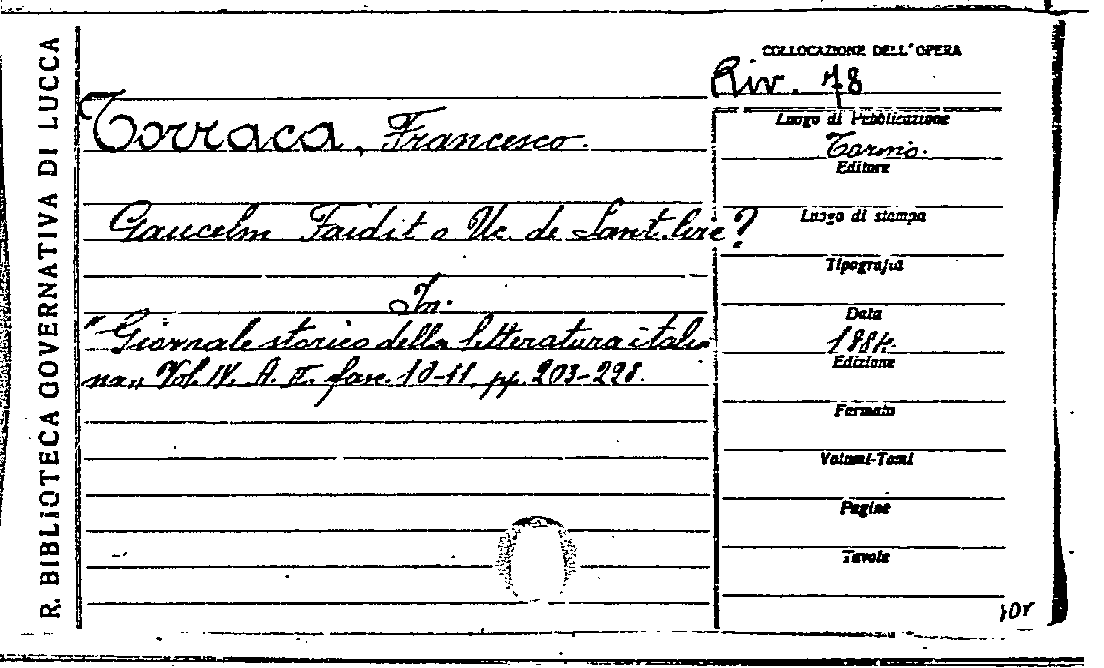 R. BIBLIOTECA GOVERNATIVA DI LUCCA
COLLOCAZIONE DELL'OPERA
Riv. 78
Torraca, Francesco.
Gaucelm Faidit o Uc. de Sant. Circ?
In:
"Giornale storico della letteratura italia
na" Vol. IV. A. II. fasc. 10-11, pp. 203-298.
Luogo di Pubblicazione
Torino.
Editore
Luogo di stampa
Tipografia
Data
1884.
Edizione
Formato
Volumi-Tomi
Pagine
Tavole